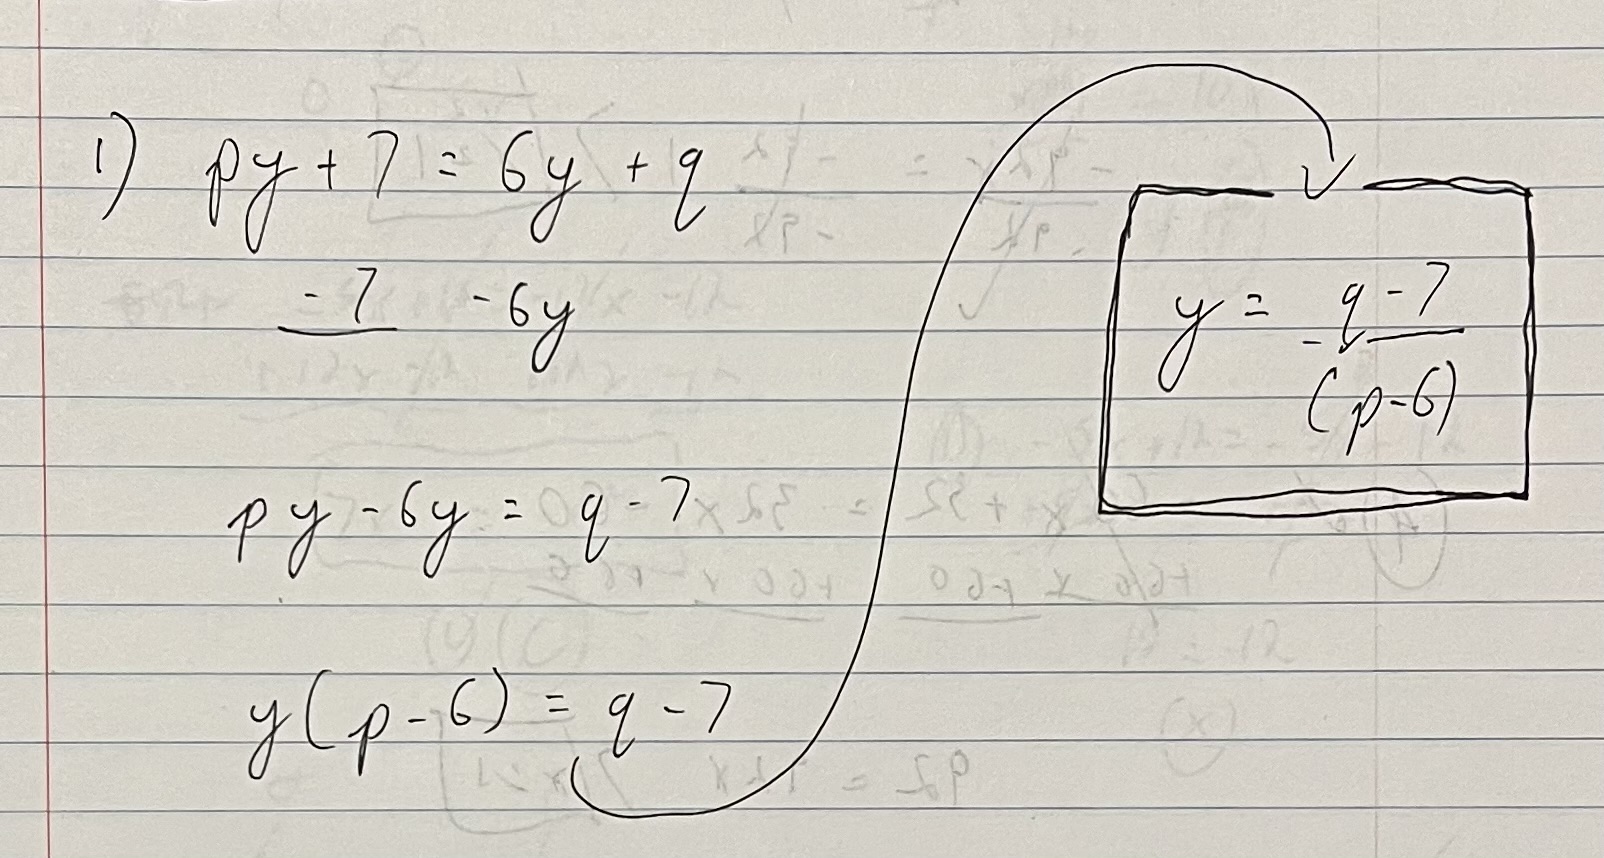 1) py + 7 = 6y + q
- 7 - 6y
py - 6y = q - 7
y(p - 6) = q - 7
y = q - 7
(p - 6)